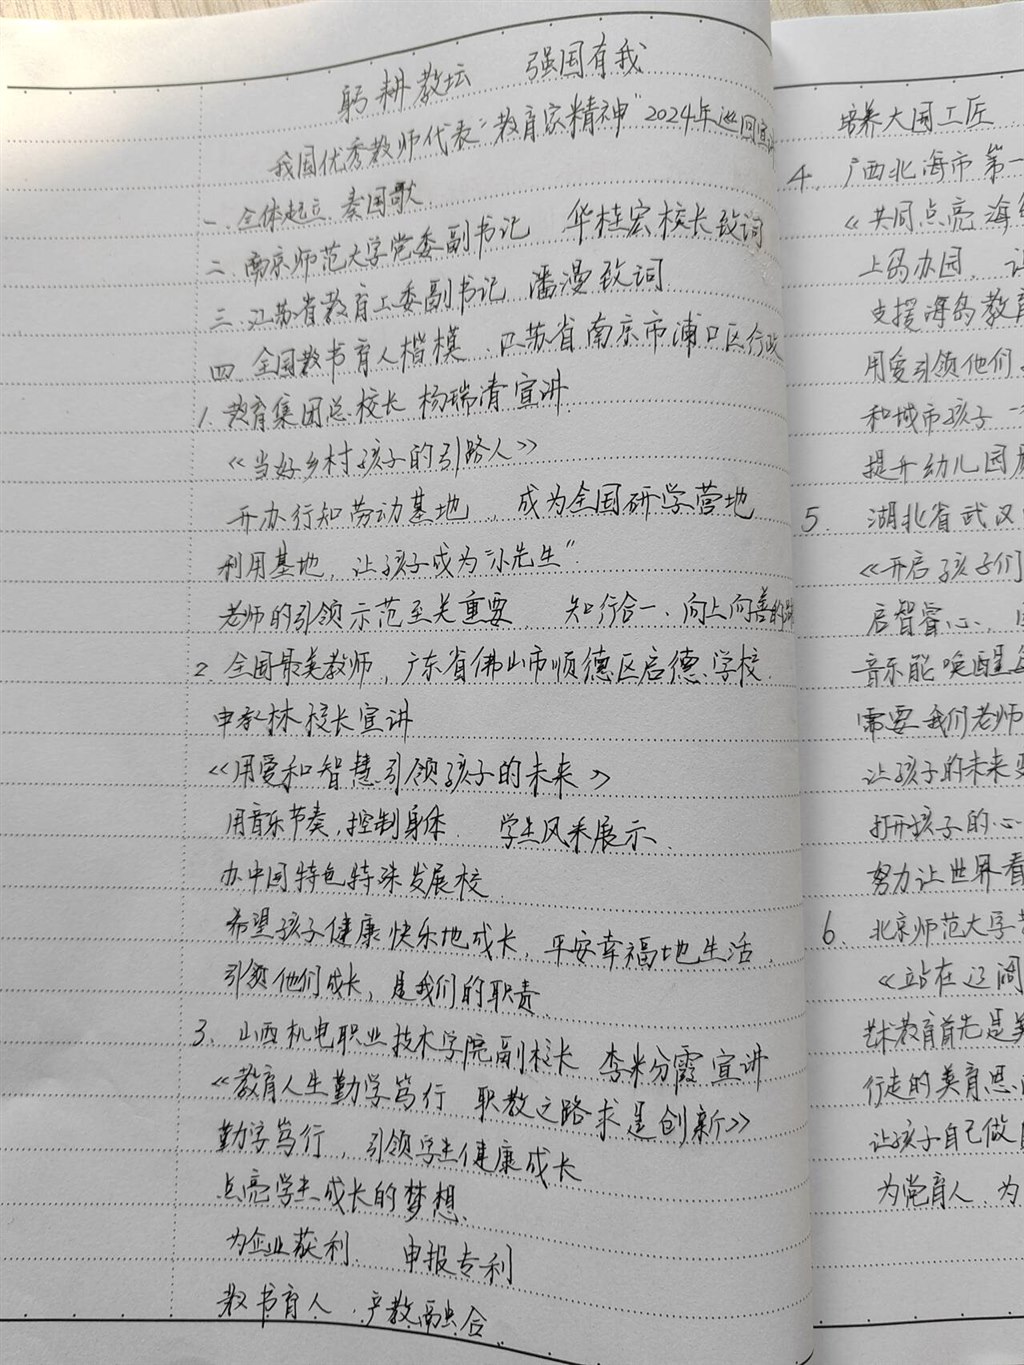 躬耕教坛　强国有我
我国优秀教师代表"教育家精神"2024年巡回宣
一.全体起立 奏国歌
二.南京师范大学党委副书记　华桂宏校长致词
三.江苏省教育工委副书记 潘漫致词
四.全国教书育人楷模、江苏省南京市浦口区行政
1.教育集团总校长 杨瑞清宣讲
《当好乡村孩子的引路人》
开办行知劳动基地，成为全国研学营地
利用基地，让孩子成为"小先生"
老师的引领示范至关重要　知行合一、向上向善的
2.全国最美教师，广东省佛山市顺德区启德学校
申承林校长宣讲
《用爱和智慧引领孩子的未来》
用音乐节奏，控制身体　学生风采展示
办中国特色特殊发展校
希望孩子健康快乐地成长，平安幸福地生活
引领他们成长，是我们的职责
3.山西机电职业技术学院副校长 李粉霞宣讲
《教育人生勤学笃行 职教之路求是创新》
勤学笃行，引领学生健康成长
点亮学生成长的梦想
为企业获利　申报专利
教书育人、产教融合
培养大国工匠
4.广西北海市第一
《共同点亮海
上岛办园，让
支援海岛教育
用爱引领他们
和城市孩子一
提升幼儿园
5.湖北省武汉
《开启孩子们
启智睿心
音乐能唤醒
需要我们老师
让孩子的未来
打开孩子的心
努力让世界看
6.北京师范大学
《站在辽阔
艺术教育首先是美
行走的美育思
让孩子自己做
为党育人、为